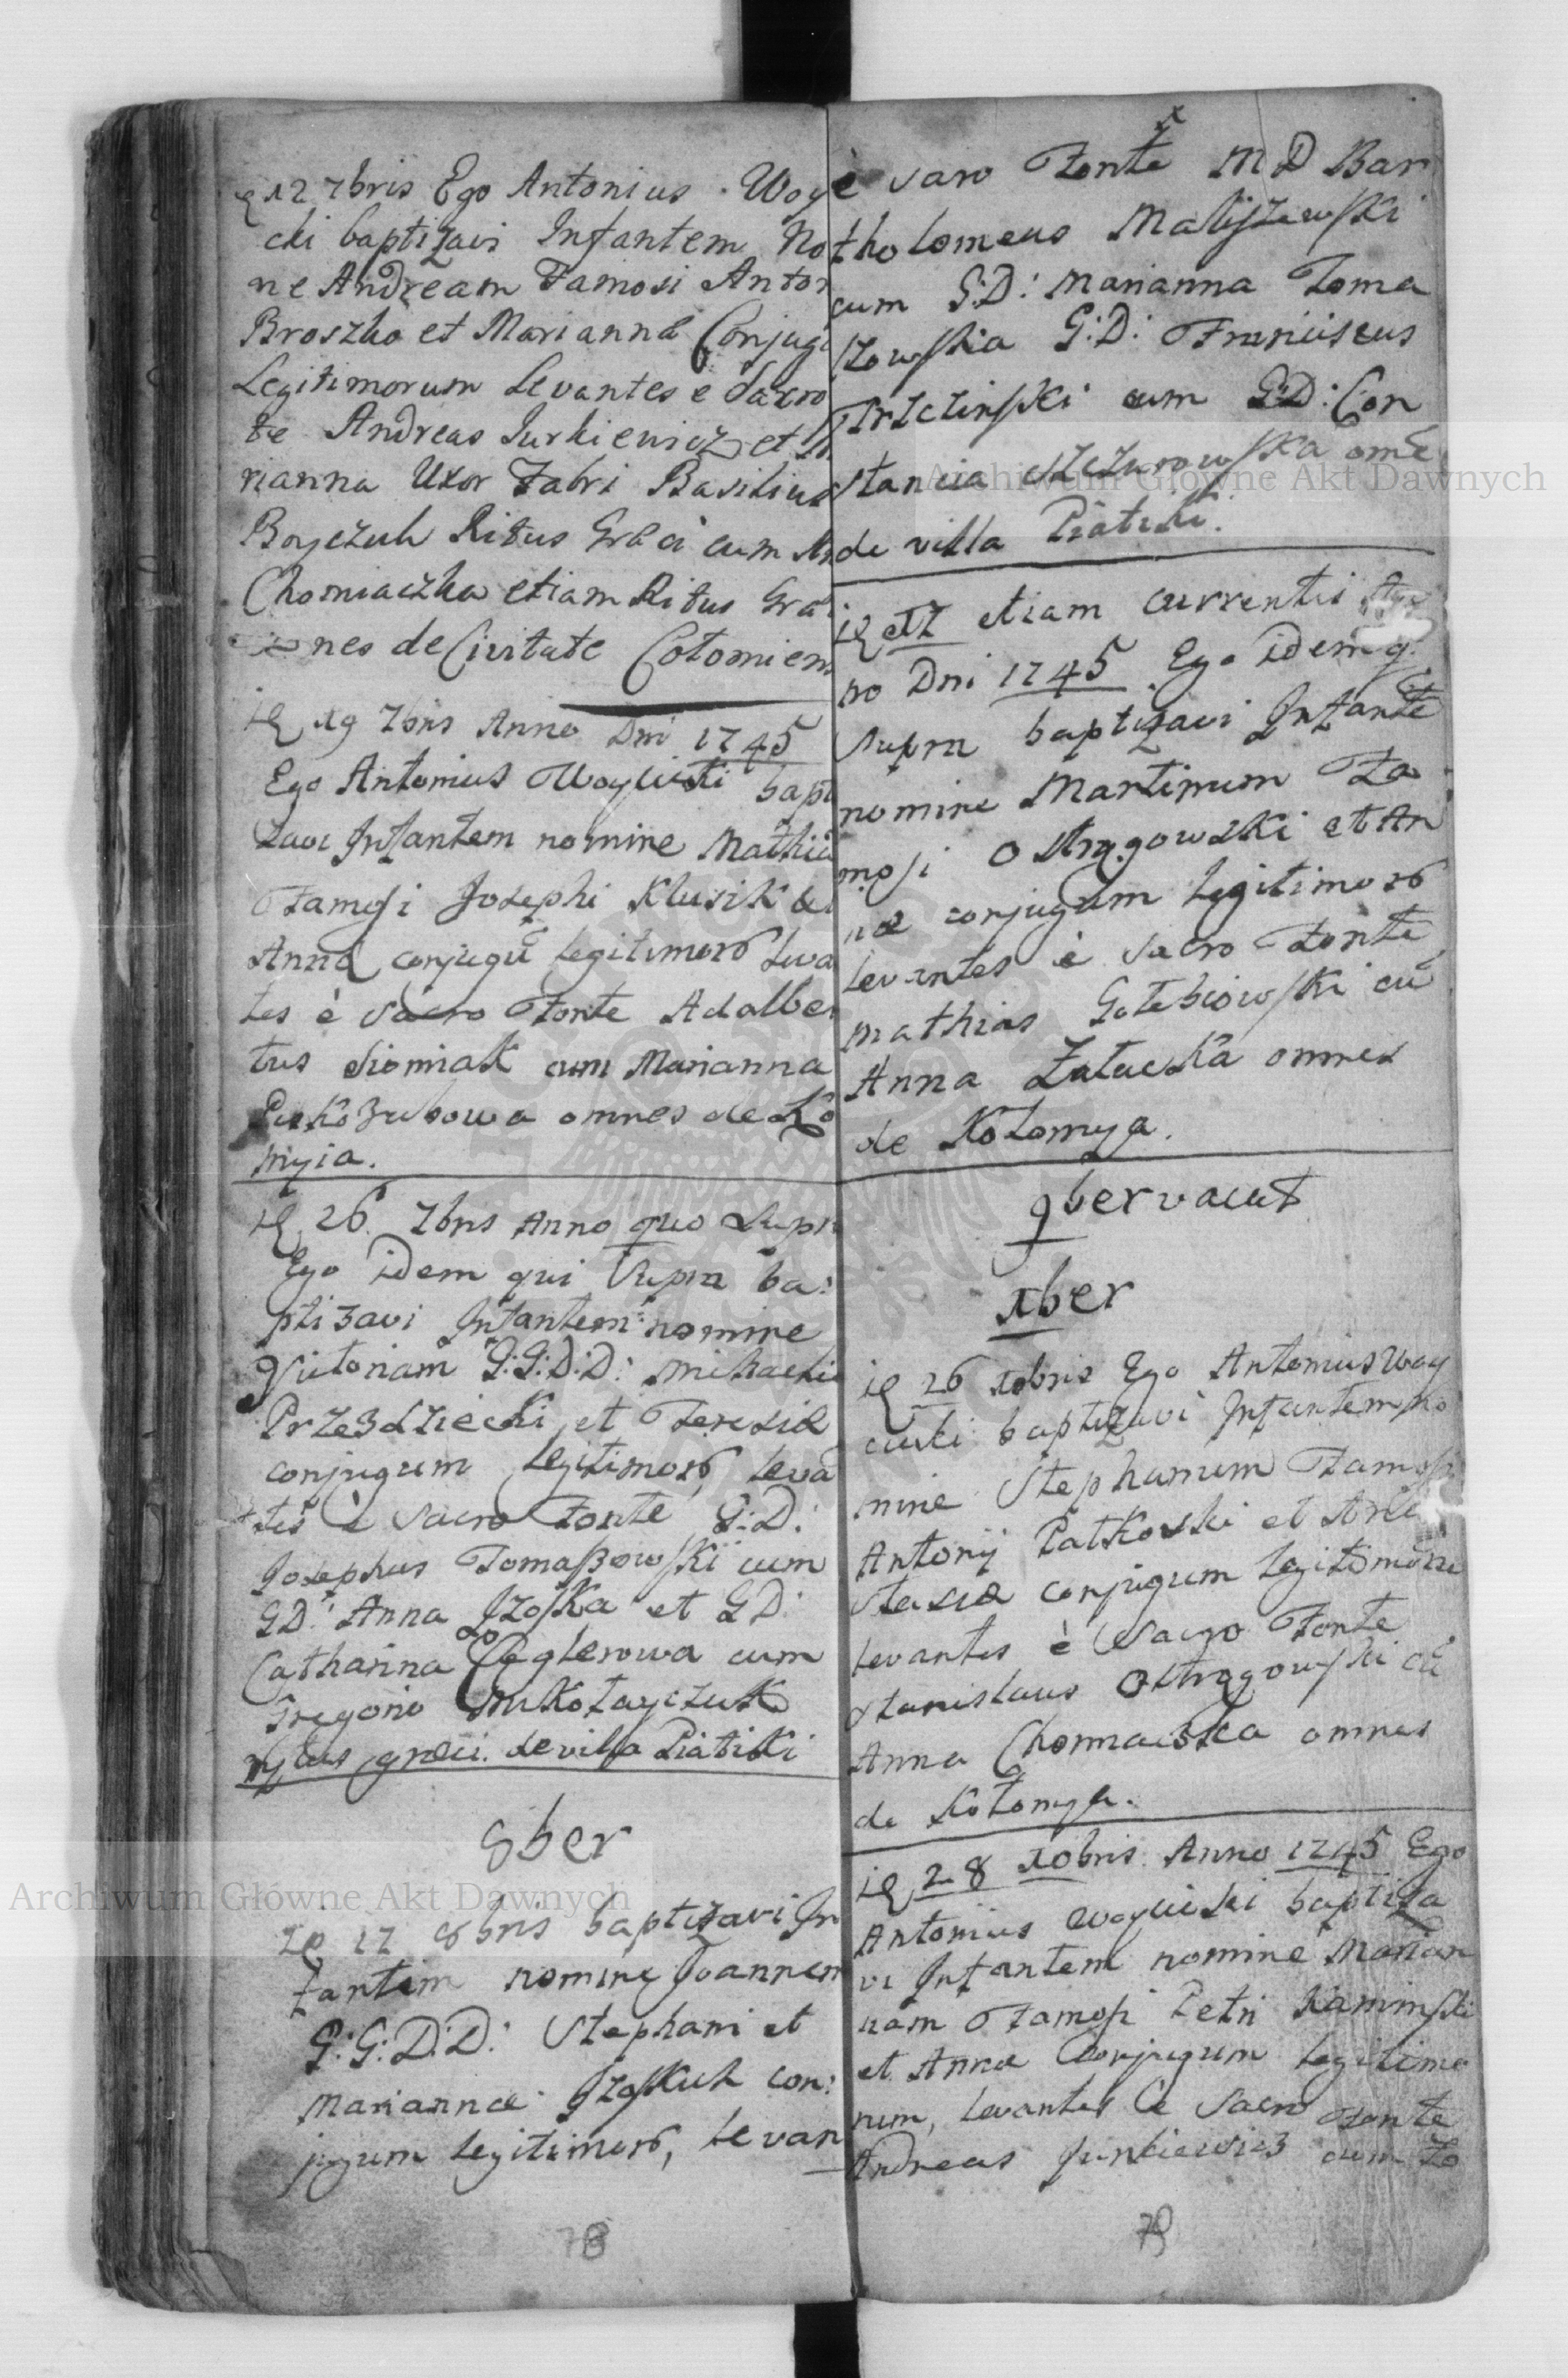 12 7bris Ego Antonius Woy
cki baptizavi Infantem No
ne Andream Famosi Anton
Broszko et Mariannæ Conjugu
Legitimorum Levantes e Sacro
te Andreas Jurkiewicz et
rianna Uxor Fabri Basilius
Boyczuk Ritus Græci cum
Chomiaczka etiam Ritus Græ
nes de Civitate Colomien
19 7bris Anno Dni 1745
Ego Antonius Woyciski bapti
zavi Infantem nomine Mathiã
Famosi Josephi Klusik et
Annæ conjugũ legitimorũ leva
tes è sacro Fonte Adalber
tus Siomiak cum Marianna
omnes de Ko
myia.
26 7bris Anno quo Supra
Ego idem qui Supra ba:
ptizavi Infantem nomine
Victoriam G:G:D:D: Michaelis
Przezdziecki et Teresiæ
conjugum legitimorũ, levã
tes è Sacro Fonte G:D:
Josephus Tomaszowski cum
GD: Anna Jzoska et GD:
Catharina Ceglerowa cum
Gregorio Mikołayczuk
ritus græci. de villa Piatiki
8ber
17 8bris baptizavi In
fantem nomine Joannem
G:G:D:D: Stephani et
Mariannæ Jzoskuk con:
jugum legitimorũ, levan
78
è sacro Fonte MD Bar
tholomeus Maliszewski
cum G:D: Marianna Toma
szowska G:D: Franciscus
Trzcinski cum G:D: Con
stancia Szczurowska omẽ
de villa Piatiki.
etiam currentis
no Dni 1745 Ego idem q
supra baptizavi Infantẽ
nomine Martinum Fa
mosi Ostrągowski et An
næ conjugum legitimorũ
levantes è sacro Fonte
Mathias Gołębiowski cũ
Anna Załucka omnes
de Kołomya.
9ber vacat
Xber
26 Xbris Ego Antonius Woy
ciski baptizavi Infantem no
mine Stephanum Famosi
Antonij Patkoski et
stasiæ conjugum legitimorũ
levantes è Sacro Fonte
Stanislaus Ostrągowski cũ
Anna Chomiacska omnes
de Kołomya.
28 Xbris Anno 1745 Ego
Antonius Woyciski baptiza
vi Infantem nomine Marian
nam Famosi Petri Kaminski
et Annæ Conjugum legitimo
rum, levantes è Sacro Fonte
Andreas Jurkiewicz cum Zo
79
Archiwum Głowne Akt Dawnych
Archiwum Głowne Akt Dawnych